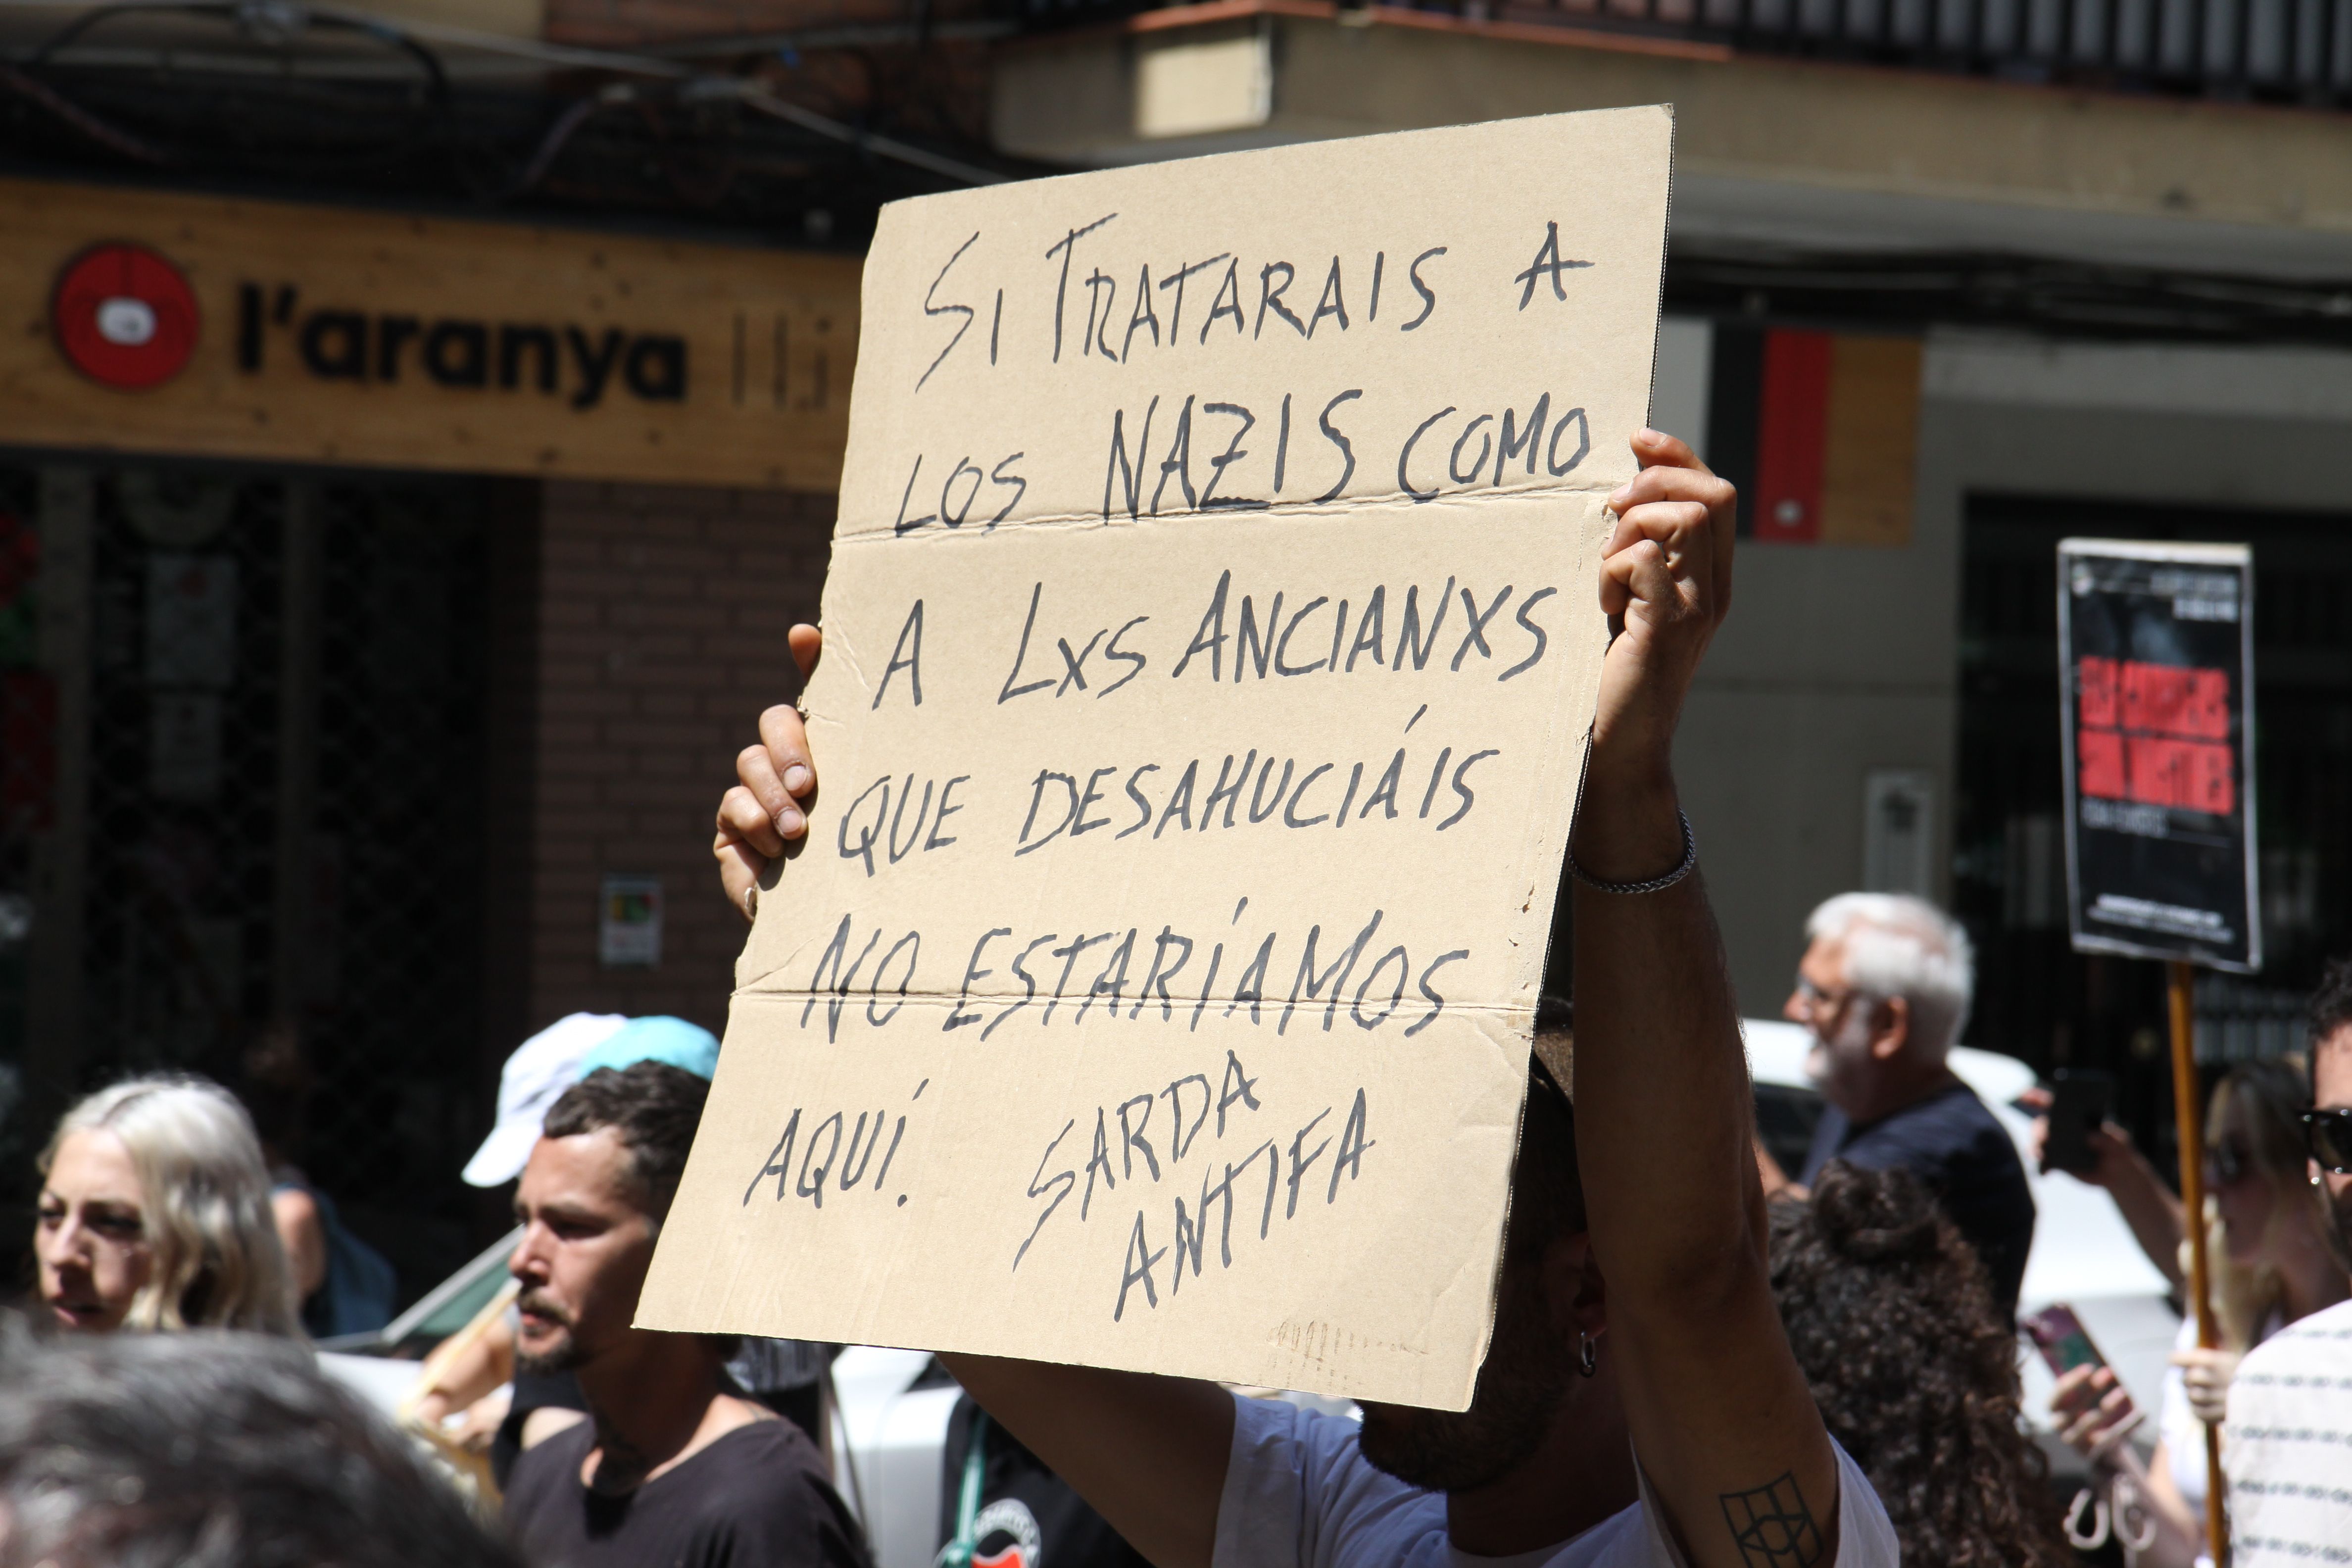 l'aranya
SI TRATARAIS A
LOS NAZIS COMO
A LXS ANCIANXS
QUE DESAHUCIÁIS
NO ESTARÍAMOS
AQUÍ.
SARDA
ANTIFA